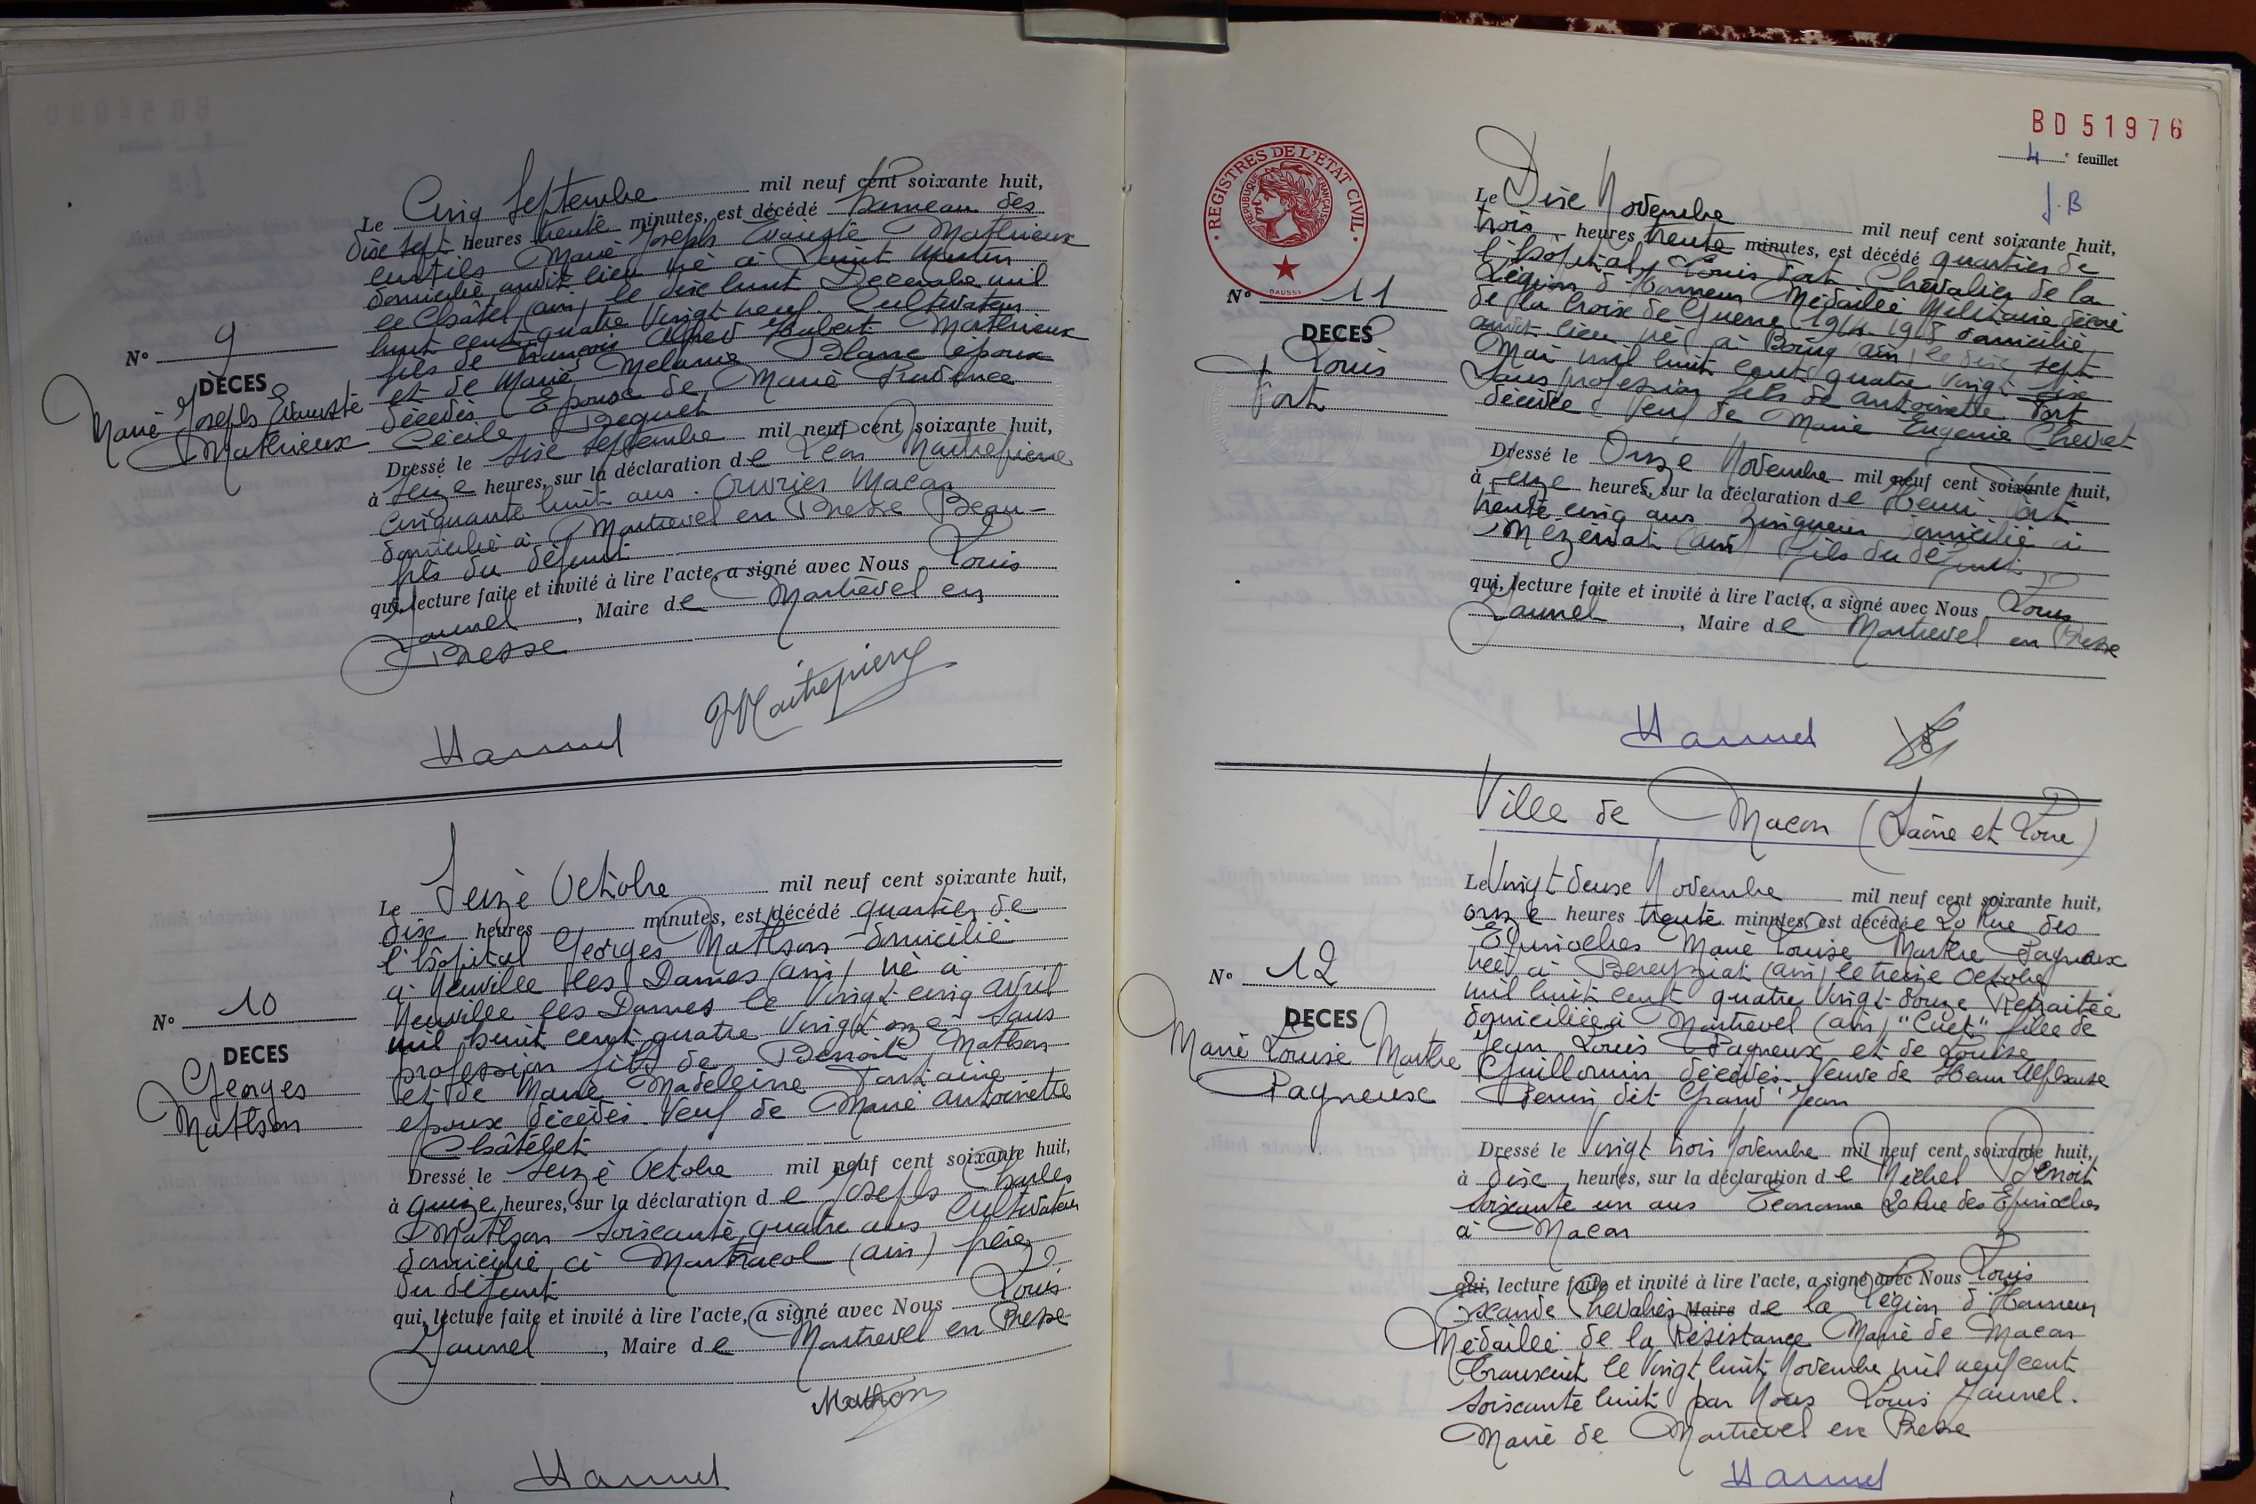 Le Cinq Septembre mil neuf cent soixante huit,
dix sept heures trente minutes, est décédé hameau des
Marie Joseph Mathieux
domicilié audit lieu né à Saint Martin
le Châtel (ain) le dix huit Décembre mil
huit cent quatre vingt neuf. Cultivateur
fils de François Alfred Hubert Mathieux
et de Marie Melanie Blanc époux
décédés Epoux de Marie Prudence
Cécile Bequet
N° 9
DECES
Marie Joseph
Mathieux
Dressé le six septembre mil neuf cent soixante huit,
à seize heures, sur la déclaration de Léon Maitrepierre
cinquante huit ans. Ouvrier Maçon
domicilié à Montrevel en Bresse Beau-
fils du défunt
qui, lecture faite et invité à lire l'acte, a signé avec Nous Louis
Jaunel, Maire de Montrevel en
Bresse
Maitrepierre
Le Seize Octobre mil neuf cent soixante huit,
dix heures minutes, est décédé quartier de
l'hôpital Georges Mathon domicilié
à Neuville les Dames (ain) né à
Neuville les Dames le vingt cinq avril
mil huit cent quatre vingt onze sans
profession fils de Benoit Mathon
et de Marie Madeleine Fontaine
époux décédés. Veuf de Marie antoinette
Châtelet
N° 10
DECES
Georges
Mathon
Dressé le seize Octobre mil neuf cent soixante huit,
à quinze heures, sur la déclaration de Joseph Charles
Mathon soixante quatre ans Cultivateur
domicilié à Montracol (ain) frère
du défunt
qui, lecture faite et invité à lire l'acte, a signé avec Nous Louis
Jaunel, Maire de Montrevel en Bresse
Mathon
BD 51976
4e feuillet
J.B
REGISTRES DE L'ETAT CIVIL
REPUBLIQUE FRANÇAISE
DAUSSY
Le Dix Novembre mil neuf cent soixante huit,
trois heures trente minutes, est décédé quartier de
l'hôpital, Louis Fort Chevalier de la
Légion d'Honneur Médaillé Militaire décoré
de la Croix de Guerre 1914 1918 domicilié
audit lieu né à (ain) le dix sept
Mai mil huit cent quatre vingt six
sans profession fils de antoinette Fort
décédée Veuf de Marie Eugenie Chevat
N° 11
DECES
Louis
Fort
Dressé le Onze Novembre mil neuf cent soixante huit,
à seize heures, sur la déclaration de Henri Fort
trente cinq ans Zingueur domicilié à
Mézériat (ain) fils du défunt
qui, lecture faite et invité à lire l'acte, a signé avec Nous Louis
Jaunel, Maire de Montrevel en Bresse
Ville de Macon (Saône et Loire)
Le Vingt deux Novembre mil neuf cent soixante huit,
onze heures trente minutes, est décédée 20 Rue des
Epinoches Marie Louise Marthe Pagneux
née à Bereyziat (ain) le treize Octobre
mil huit cent quatre vingt douze Retraitée
domiciliée à Montrevel (ain) "Cuet" fille de
Jean Louis Pagneux et de Louise
Guillomin décédés. Veuve de Henri Alphonse
Perrin dit Grand Jean
N° 12
DECES
Marie Louise Marthe
Pagneux
Dressé le Vingt trois Novembre mil neuf cent soixante huit,
à dix heures, sur la déclaration de Michel Benoit
soixante un ans Econome 20 Rue des Epinoches
à Macon
qui, lecture faite et invité à lire l'acte, a signé avec Nous Louis
Escande Chevalier Maire de la Légion d'Honneur
Médaillé de la Résistance Maire de Macon
Transcrit le vingt huit Novembre mil neuf cent
soixante huit par Nous Louis Jaunel.
Maire de Montrevel en Bresse